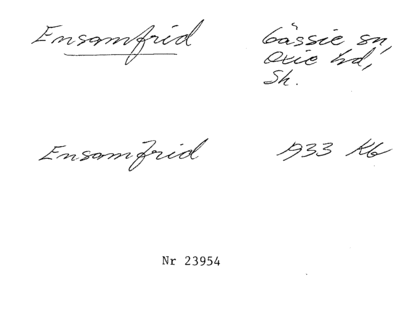 Ensamfrid
Gässie sn,
Oxie hd,
Sk.
Ensamfrid 1933 Kb
Nr 23954